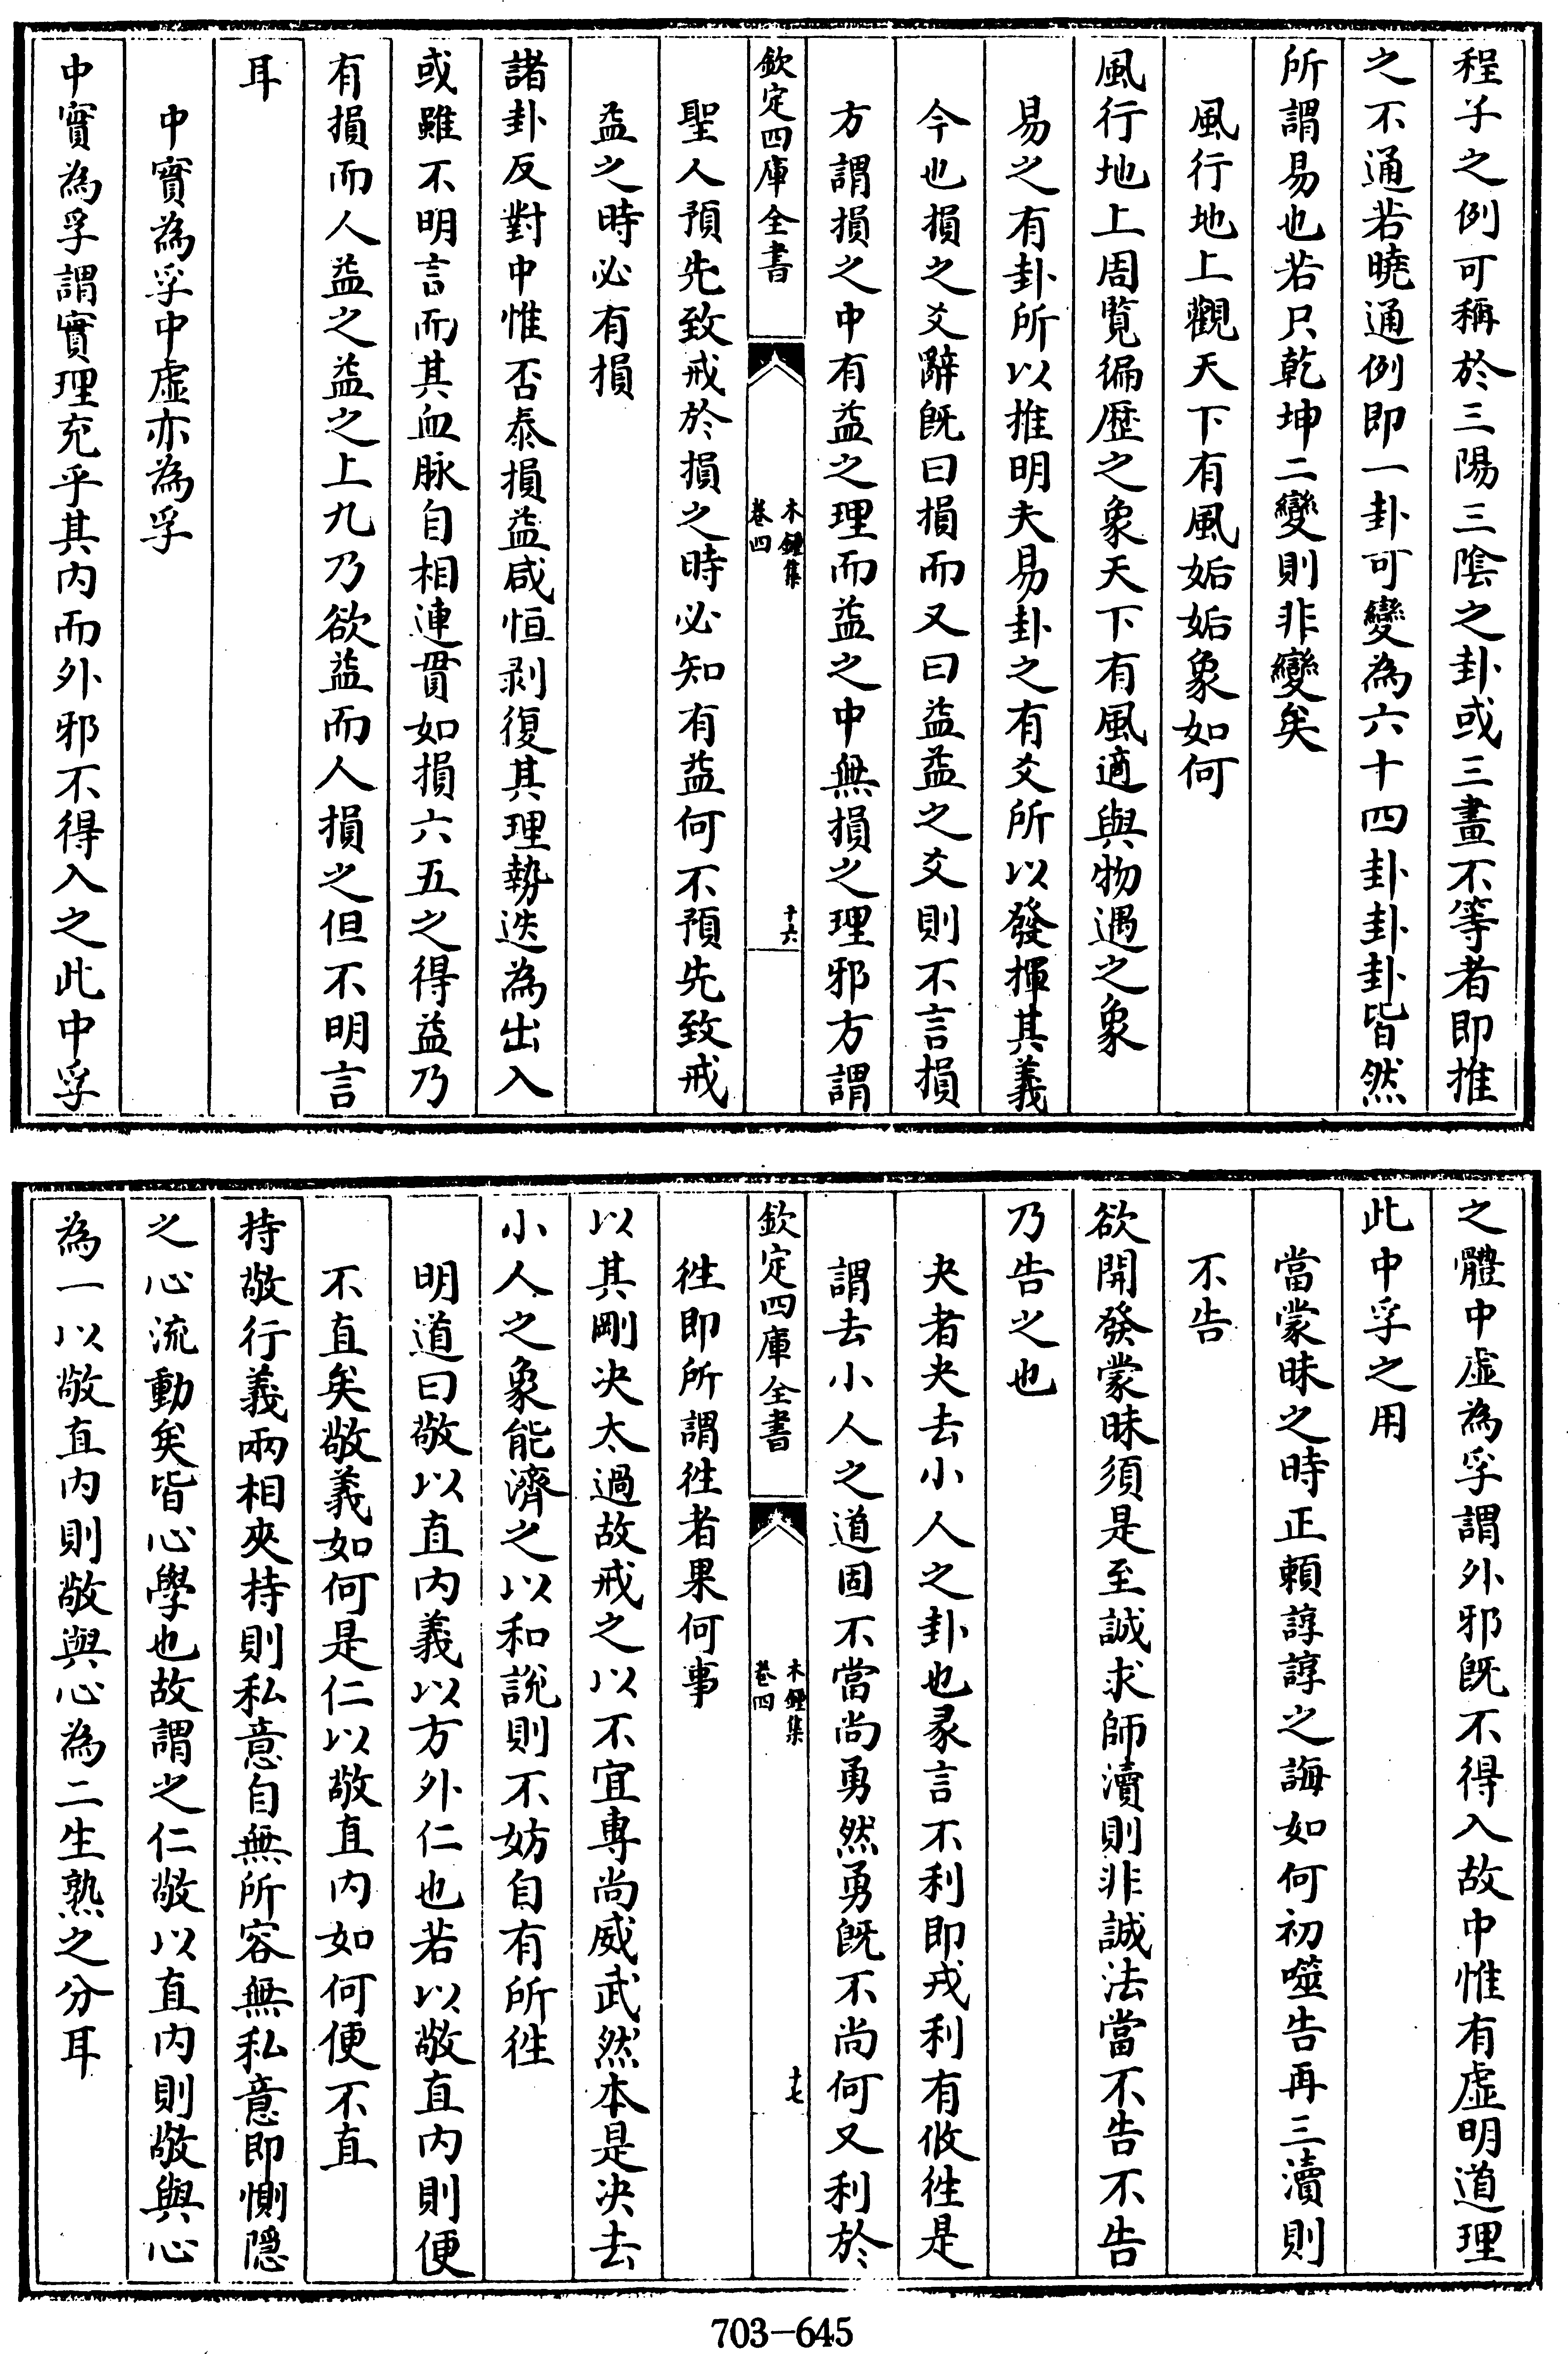 程子之例可稱於三陽三陰之卦或三畫不等者即推
之不通若曉通例即一卦可變為六十四卦卦卦皆然
所謂易也若只乾坤二變則非變矣
風行地上觀天下有風姤姤象如何
風行地上周覧徧歴之象天下有風適與物遇之象
易之有卦所以推明夫易卦之有爻所以發揮其義
今也損之爻辭旣曰損而又曰益益之爻則不言損
方謂損之中有益之理而益之中無損之理邪方謂
欽定四庫全書
木鍾集
卷四
十六
聖人預先致戒於損之時必知有益何不預先致戒
益之時必有損
諸卦反對中惟否泰損益咸恒剥復其理勢迭為出入
或雖不明言而其血脉自相連貫如損六五之得益乃
有損而人益之益之上九乃欲益而人損之但不明言
耳
中實為孚中虚亦為孚
中實為孚謂實理充乎其内而外邪不得入之此中孚
之體中虚為孚謂外邪旣不得入故中惟有虚明道理
此中孚之用
當蒙昧之時正賴諄諄之誨如何初噬告再三瀆則
不告
欲開發蒙昧須是至誠求師瀆則非誠法當不告不告
乃告之也
夬者夬去小人之卦也彖言不利即戎利有攸徃是
謂去小人之道固不當尚勇然勇旣不尚何又利於
欽定四庫全書
木鍾集
卷四
十七
徃即所謂徃者果何事
以其剛决太過故戒之以不宜專尚威武然本是决去
小人之象能濟之以和說則不妨自有所徃
明道曰敬以直内義以方外仁也若以敬直内則便
不直矣敬義如何是仁以敬直内如何便不直
持敬行義兩相夾持則私意自無所容無私意即惻隠
之心流動矣皆心學也故謂之仁敬以直内則敬與心
為一以敬直内則敬與心為二生熟之分耳
703-645